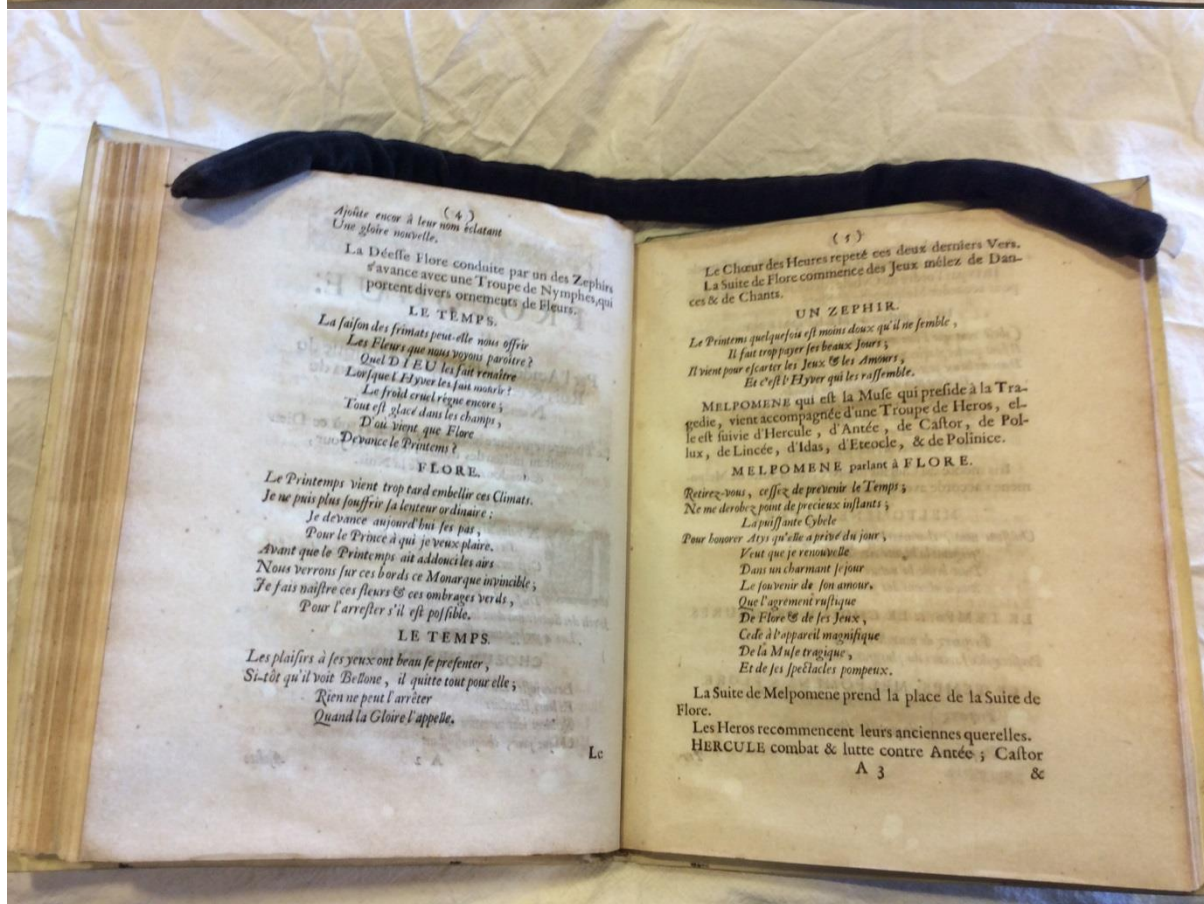 ( 4 )
Ajoûte encor à leur nom éclatant
Une gloire nouvelle.
La Déeſſe Flore conduite par un des Zephirs
s'avance avec une Troupe de Nymphes, qui
portent divers ornements de Fleurs.
LE TEMPS.
La ſaiſon des frimats peut-elle nous offrir
Les Fleurs que nous voyons paroître ?
Quel DIEU les fait renaître
Lorſque l'Hyver les fait mourir ?
Le froid cruel règne encore ;
Tout eſt glacé dans les champs,
D'où vient que Flore
Devance le Printems ?
FLORE.
Le Printemps vient trop tard embellir ces Climats.
Je ne puis plus ſouffrir ſa lenteur ordinaire ;
Je devance aujourd'hui ſes pas,
Pour le Prince à qui je veux plaire.
Avant que le Printemps ait addouci les airs
Nous verrons ſur ces bords ce Monarque invincible ;
Je fais naiſtre ces fleurs & ces ombrages verds,
Pour l'arreſter s'il eſt poſſible.
LE TEMPS.
Les plaiſirs à ſes yeux ont beau ſe preſenter,
Si-tôt qu'il voit Bellone, il quitte tout pour elle ;
Rien ne peut l'arrêter
Quand la Gloire l'appelle.
Le
( 5 )
Le Chœur des Heures repeté ces deux derniers Vers.
La Suite de Flore commence des Jeux mêlez de Dan-
ces & de Chants.
UN ZEPHIR.
Le Printems quelquefois eſt moins doux qu'il ne ſemble,
Il fait trop payer ſes beaux Jours ;
Il vient pour eſcarter les Jeux & les Amours,
Et c'eſt l'Hyver qui les raſſemble.
MELPOMENE qui eſt la Muſe qui preſide à la Tra-
gedie, vient accompagnée d'une Troupe de Heros, el-
le eſt ſuivie d'Hercule, d'Antée, de Caſtor, de Pol-
lux, de Lincée, d'Idas, d'Eteocle, & de Polinice.
MELPOMENE parlant à FLORE.
Retirez-vous, ceſſez de prevenir le Temps ;
Ne me derobez point de precieux inſtants ;
La puiſſante Cybele
Pour honorer Atys qu'elle a privé du jour ;
Veut que je renouvelle
Dans un charmant ſejour
Le ſouvenir de ſon amour.
Que l'agrément ruſtique
De Flore & de ſes Jeux,
Cede à l'appareil magnifique
De la Muſe tragique,
Et de ſes ſpectacles pompeux.
La Suite de Melpomene prend la place de la Suite de
Flore.
Les Heros recommencent leurs anciennes querelles.
HERCULE combat & lutte contre Antée ; Caſtor
A 3
&